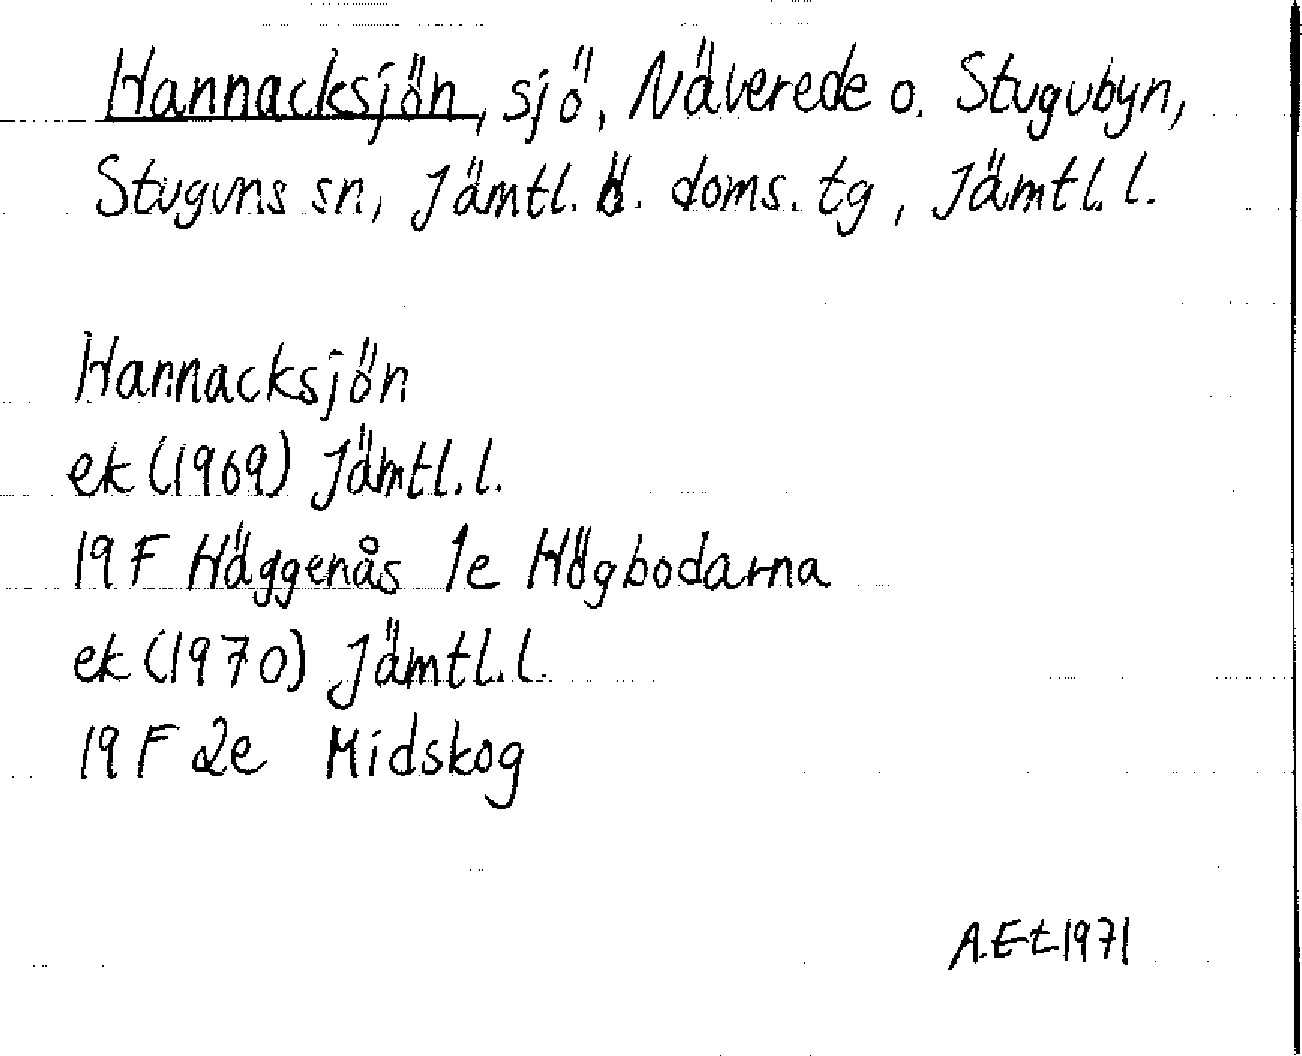 Hannacksjön, sjö, Näverede o. Stugubyn,
Stuguns sn, Jämtl. d. doms. tg, Jämtl. l.
Hannacksjön
ek (1969) Jämtl. l.
19 F Häggenås 1e Högbodarna
ek (1970) Jämtl. l.
19 F 2e Midskog
A.Et 1971